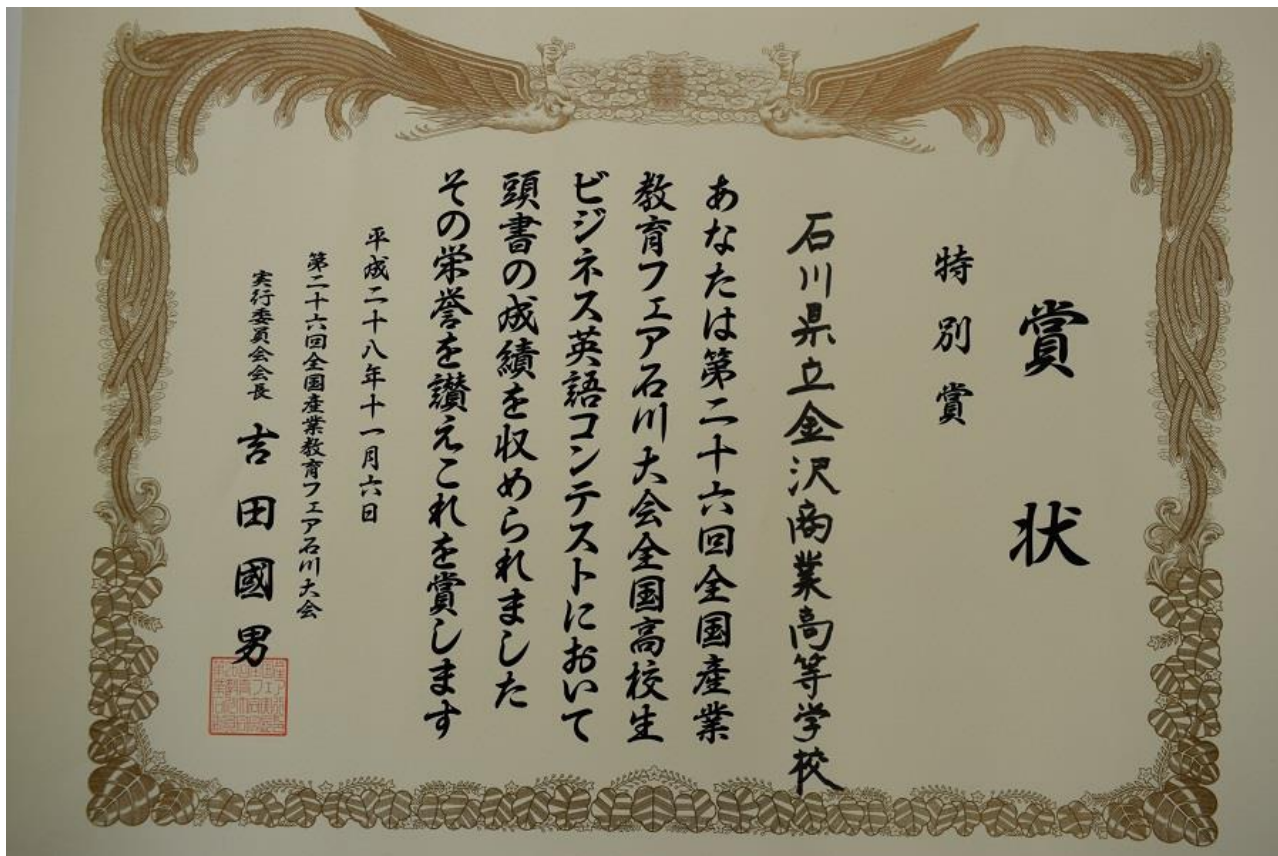 賞状
特別賞
石川県立金沢商業高等学校
あなたは第二十六回全国産業
教育フェア石川大会全国高校生
ビジネス英語コンテストにおいて
頭書の成績を収められました
その栄誉を讃えこれを賞します
平成二十八年十一月六日
第二十六回全国産業教育フェア石川大会
実行委員会会長 吉田國男